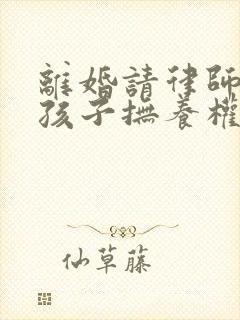 離婚請律師
孩子撫養權
仙草藤